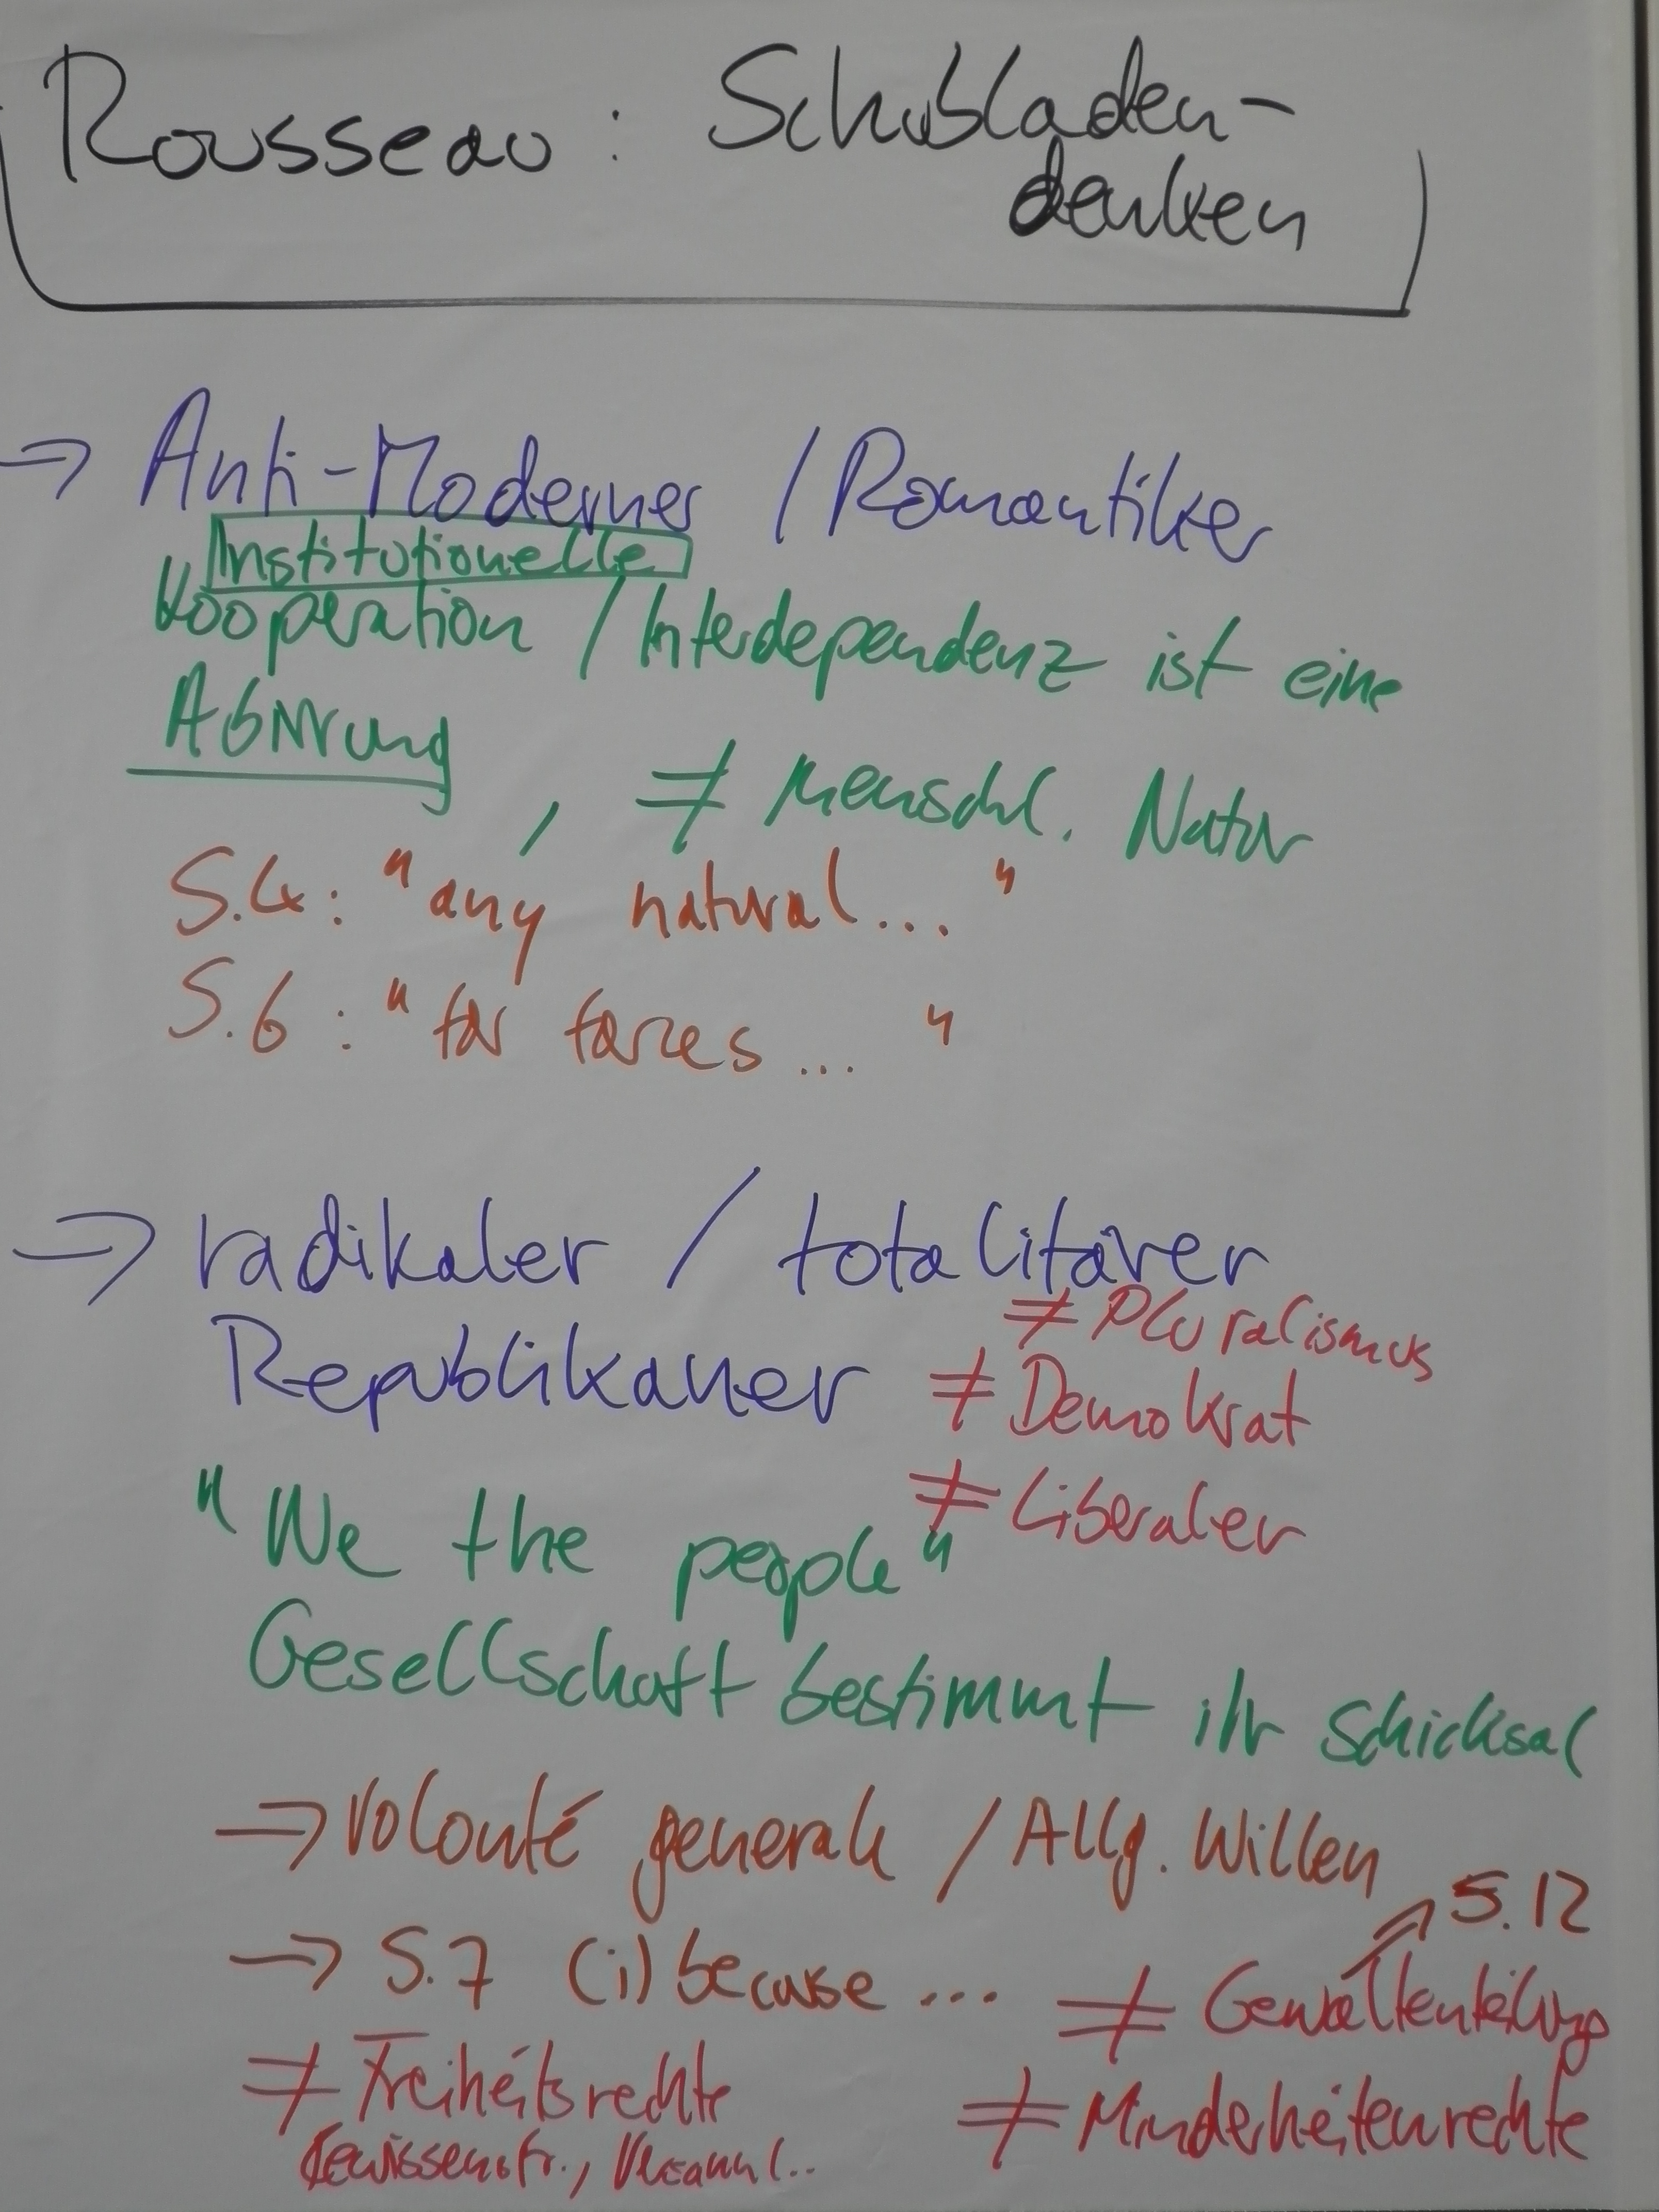 Rousseau : Schubladen-
denken
→ Anti-Moderner / Romantiker
Institutionelle
Kooperation / Interdependenz ist eine
Abirrung, ≠ menschl. Natur
S.4: "any natural..."
S.6: "far forces ..."
→ radikaler / totalitärer
≠ Pluralismus
Republikaner ≠ Demokrat
≠ Liberaler
"We the people"
Gesellschaft bestimmt ihr Schicksal
⇒ Volonté generale / Allg. Willen
S.12
→ S.7 (i) because ... ≠ Gewaltenteilung
≠ Freiheitsrechte ≠ Minderheitenrechte
Gewissensfr.,